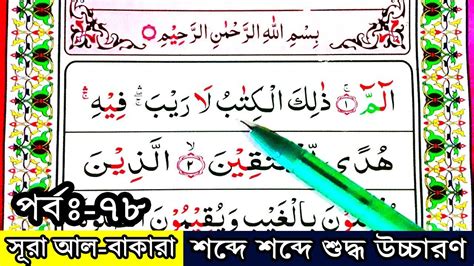 بِسْمِ اللّٰهِ الرَّحْمٰنِ الرَّحِيْمِ
الٓمّٓ ۚ۝۱ ذٰلِكَ الْكِتٰبُ لَا رَيْبَ ۛ فِيْهِ ۛ
هُدًى لِّلْمُتَّقِيْنَ ۙ۝۲ الَّذِيْنَ
بِالْغَيْبِ وَيُقِيْمُوْنَ
পর্বঃ-৭৮
সূরা আল-বাকারা শব্দে শব্দে শুদ্ধ উচ্চারণ